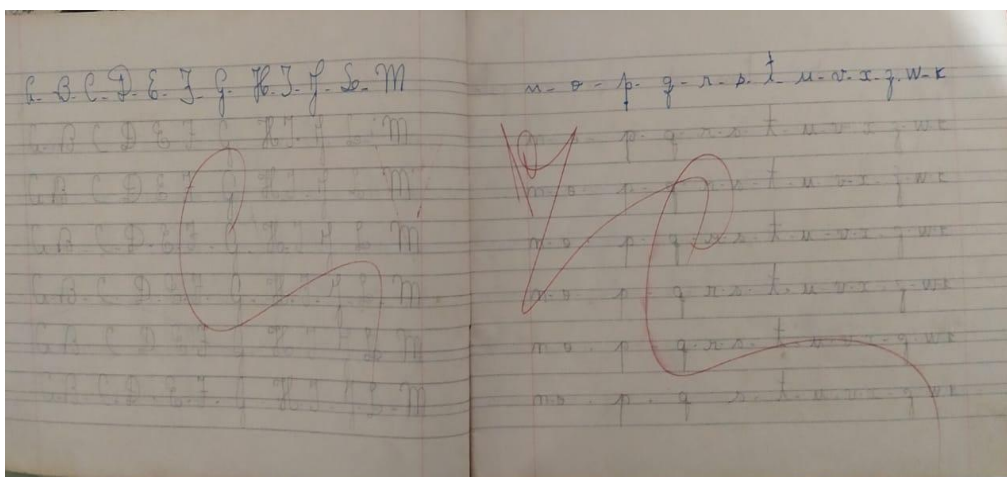 A. B. C. D. E. F. G. H. I. J. L. M
A. B C D E F G H. I. J L. M
A B C D E F G H. I. J L. M
A. B. C. D. E. F. G. H. I. J L. M
A. B. C. D. E F. G. H. I. J L. M.
A B C D E F G H. I. J L. M
A. B. C. D. E. F. G H I. J. L. M
n - o - p. q. r. s. t. u. v. x. z. w. k
n o. p. q. r. s. t. u. v. x z. w k
n o. p. q r. s. t. u. v. x. z. w k
n. o. p. q. r. s. t. u. v. x. z. w k
n. o. p. q. r. s. t. u v. x. z. w k
n o. p. q. r. s. t. u. v. x. q. w k
n. o. p. q s. t. u. v. x. z w k